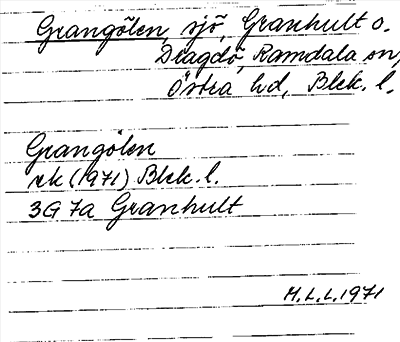 Grangölen, sjö, Granhult o.
Dragdö, Ramdala sn,
Östra hd, Blek. l.
Grangölen
rk (1971) Blek. l.
3G 7a Granhult
M.L.L. 1971